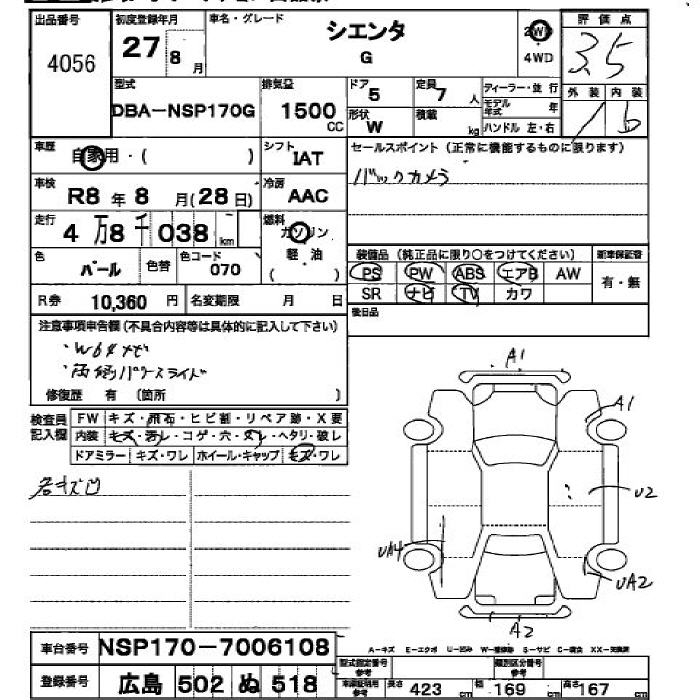 出品番号 初度登録年月 車名・グレード 評価点
4056 27 8月 シエンタ 2WD 3.5
G 4WD
型式 排気量 ドア 定員 ディーラー・並行 外装 内装
DBA-NSP170G 1500CC 5 7人 モデル年式 年
形状 W 積載 kg ハンドル 左・右 b
車歴 自家用・( ) シフト IAT セールスポイント (正常に機能するものに限ります)
車検 R8年8月(28日) 冷房 AAC バックカメラ
走行 4万8千038km 燃料 ガソリン
軽・油
( )
色 パール 色替 色コード 070 装備品 (純正品に限り○をつけてください) 新車保証書
PS PW ABS エアB AW 有・無
SR ナビ TV カワ
R券 10,360円 名変期限 月 日 後日品
注意事項申告欄 (不具合内容等は具体的に記入して下さい)
・両側パワースライド
修復歴 有 (箇所 )
検査員記入欄 FW キズ・飛石・ヒビ割・リペア跡・X要
内装 キズ・汚レ・コゲ・穴・スレ・ヘタリ・破レ
ドアミラー キズ・ワレ ホイール・キャップ キズ・ワレ
各キズ凹
A1
A1
U2
UA4
UA2
A2
A-キズ E-エクボ U-凹み W-補修跡 S-サビ C-腐食 XX-交換済
車台番号 NSP170-7006108
型式指定番号 参考 類別区分番号 参考
登録番号 広島 502 ぬ 518
車庫証明用 参考 長さ 423cm 幅 169cm 高さ 167cm